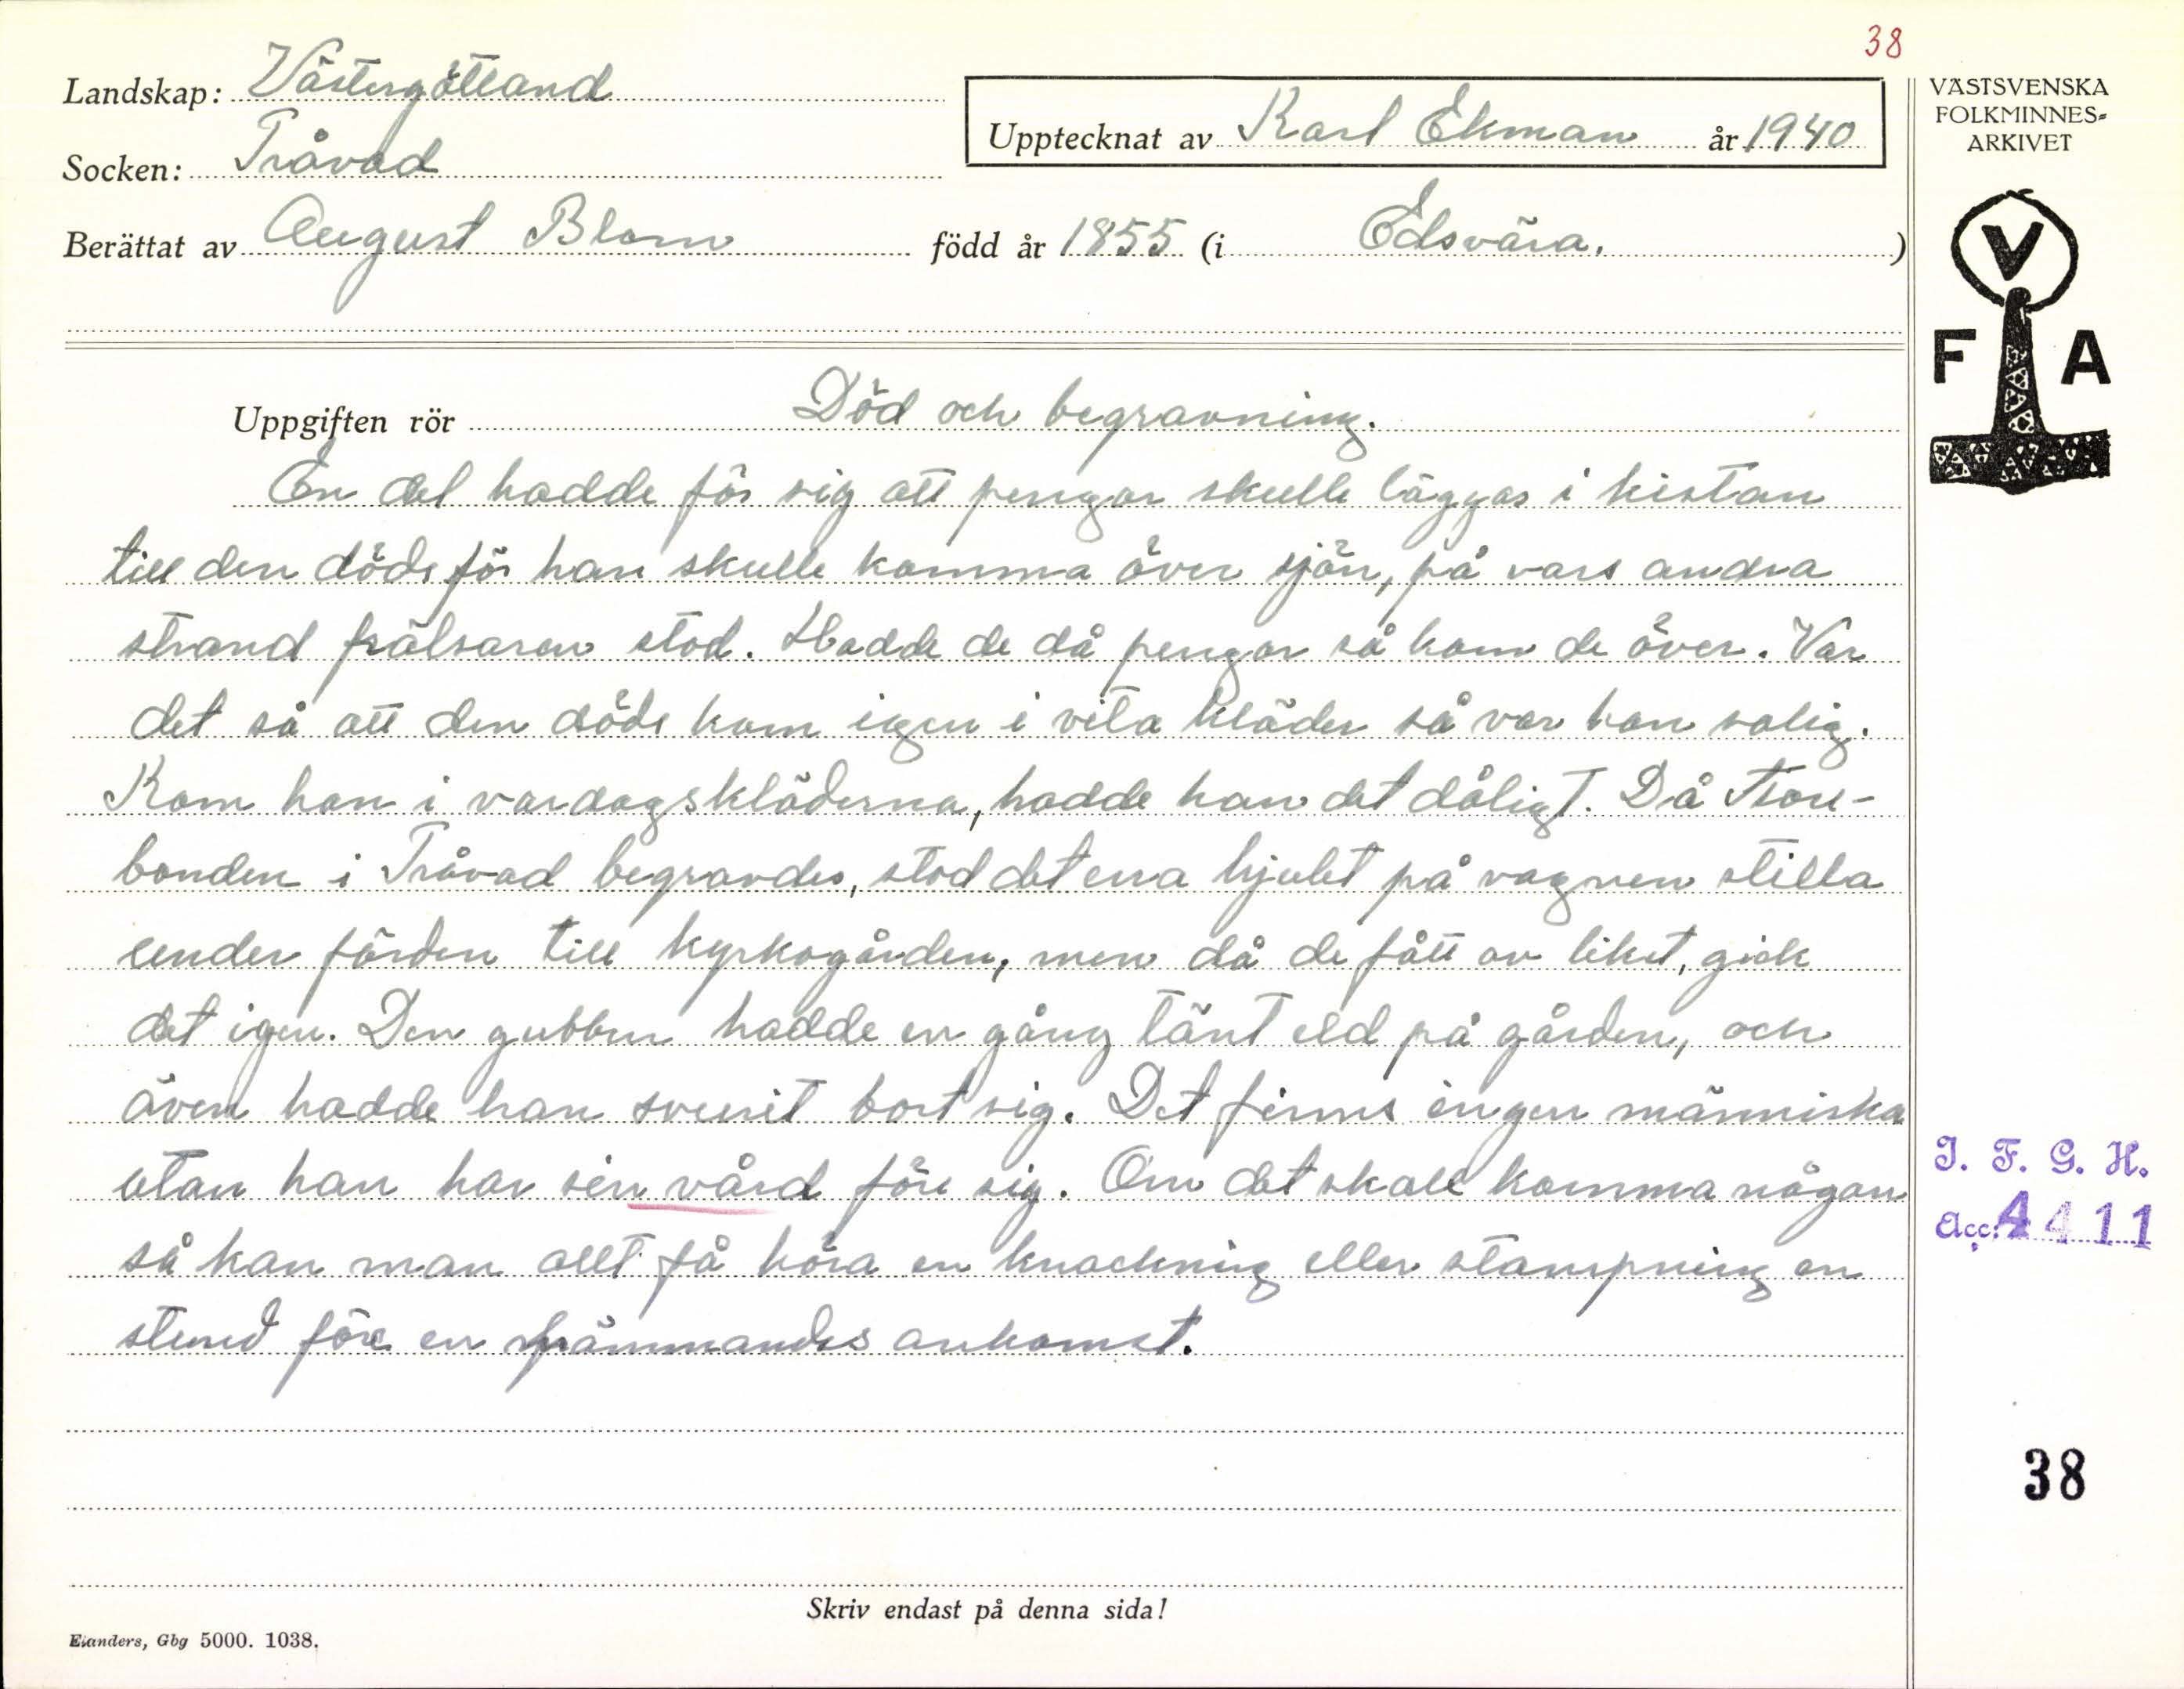 38
Landskap: Västergötland
Socken: Tråvad
Upptecknat av Karl Ekman år 1940
Berättat av August Blom född år 1855 (i Edsvära.)
VÄSTSVENSKA
FOLKMINNES-
ARKIVET
V
F A
Uppgiften rör Död och begravning.
En del hadde för sig att pengar skulle läggas i kistan
till den döde för han skulle komma över sjön, på vars andra
strand frälsaren stod. Hadde de då pengar så kom de över. Var
det så att den döde kom igen i vita kläder så var han salig.
Kom han i vardagskläderna, hadde han det dåligt. Då
bonden i Tråvad begravdes, stod det ena hjulet på vagnen stilla
under färden till kyrkogården, men då de fått av liket, gick
det igen. Den gubben hadde en gång tänt eld på gården, och
även hadde han svurit bort sig. Det finns ingen människa
utan han har sin vård före sig. Om det skall komma någon
så kan man allt få höra en knackning eller stampning en
stund före en främmandes ankomst.
I. F. G. H.
Acc. 4411
38
Skriv endast på denna sida!
Elanders, Gbg 5000. 1038.